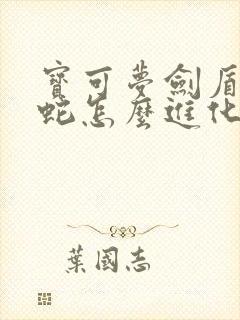 寶可夢劍盾
蛇怎麼進化
葉國志